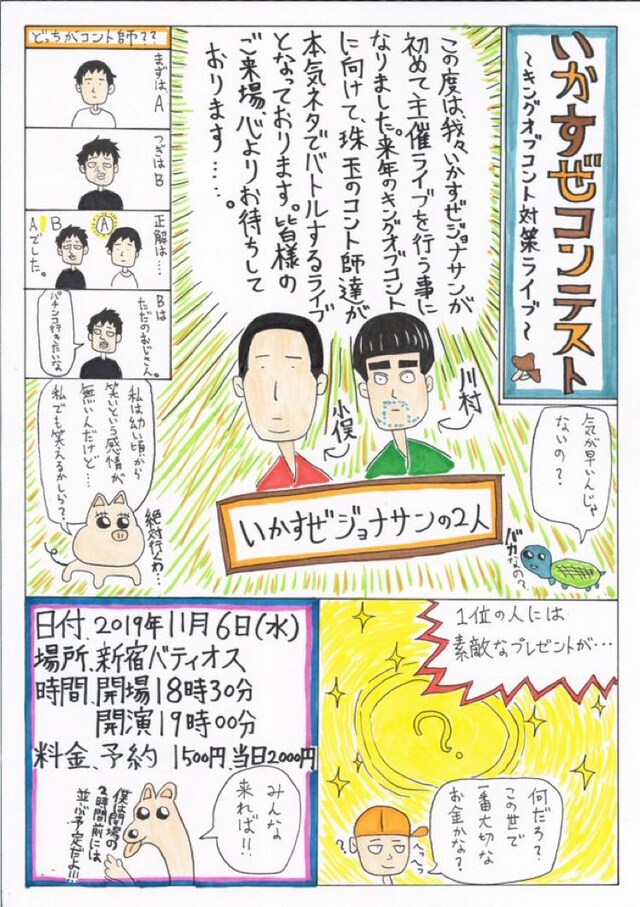 いかすぜコンテスト
〜キングオブコント対策ライブ〜
この度は、我々いかすぜジョナサンが
初めて主催ライブを行う事に
なりました。来年のキングオブコント
に向けて、珠玉のコント師達が
本気ネタでバトルするライブ
となっております。皆様の
ご来場心よりお待ちして
おります……。
どっちがコント師??
まずはA
つぎはB
正解は…
A
B
Aでした。
Bは
ただのおじさん。
パチンコ行きたいな
川村
小俣
いかすぜジョナサンの2人
気が早いんじゃ
ないの?
バカなの?
私は幼い頃から
笑いという感情が
無いんだけど…
私でも笑えるかしら?
絶対行くわ…
日付、2019年11月6日(水)
場所、新宿バティオス
時間、開場18時30分
開演19時00分
料金、予約 1500円、当日2000円
みんな
来れば!!
僕は開場の
2時間前には
並ぶ予定だよ!!!
1位の人には
素敵なプレゼントが…
?
何だろ?
この世で
一番大切な
お金かな?
?
へっへっ